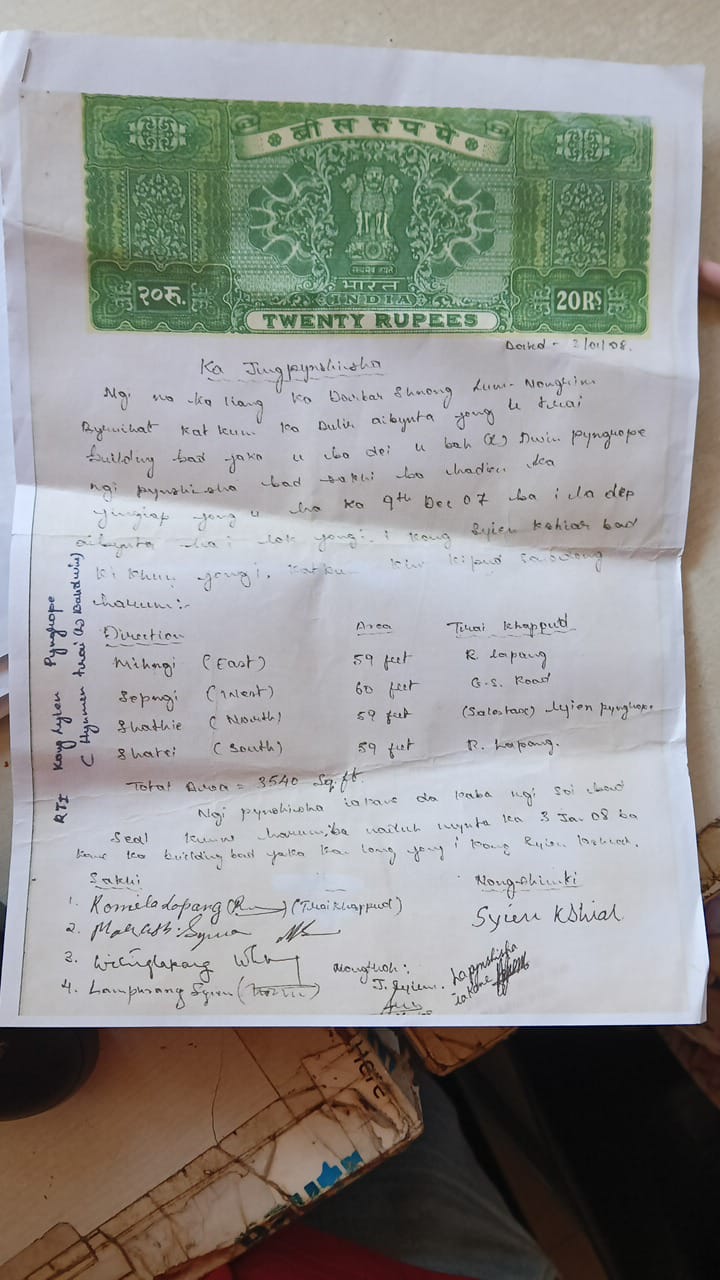 बीस रुपये
सत्यमेव जयते
भारत
INDIA
२०रु.
20RS
TWENTY RUPEES
Dated - 3/01/08.
Ka Jingpynshisha
Ngi na ka liang ka Dorbar Shnong Lum-Nongrim
Byrnihat kat kum ka Dulir aibynta jong u trai
building bad jaka u ba dei u bah (L) Dwin Pyngrope
ngi pynshisha bad sakhi ba hadien ka
jingiap jong u ha ka 9th Dec 07 ba i la dep
aibynta ha i lok jong i. i Kong Syien Kshiar bad
ki khun jong i. Katkum kiw kipud sawdong
harum:-
Direction Area Trai Khappud
Mihngi (East) 59 feet R. Lapang
Sepngi (West) 60 feet G.S. Road
Shathie (North) 59 feet (Salestax) Syien Pyngrope
Shatei (South) 59 feet R. Lapang.
Total Area = 3540 Sq.ft.
Ngi pynshisha ia kane da kaba ngi soi bad
Sedl kumne harum, ba naduh mynta ka 3 Jan 08 ba
kane ka building bad jaka kan long jong i Kong Syien Kshiar.
Sakhi Nongshimti
1. Romela Lapang (Trai Khappud)
2. Syiem
3. Lapang
4. Lamphrang Syiem
Syien Kshiar
Nongthoh:
J. Syiem.
La pynshisha
ia kane
RTI Kong Syien Pyngrope
(Hynmen trai (L) Dandwin)
Here